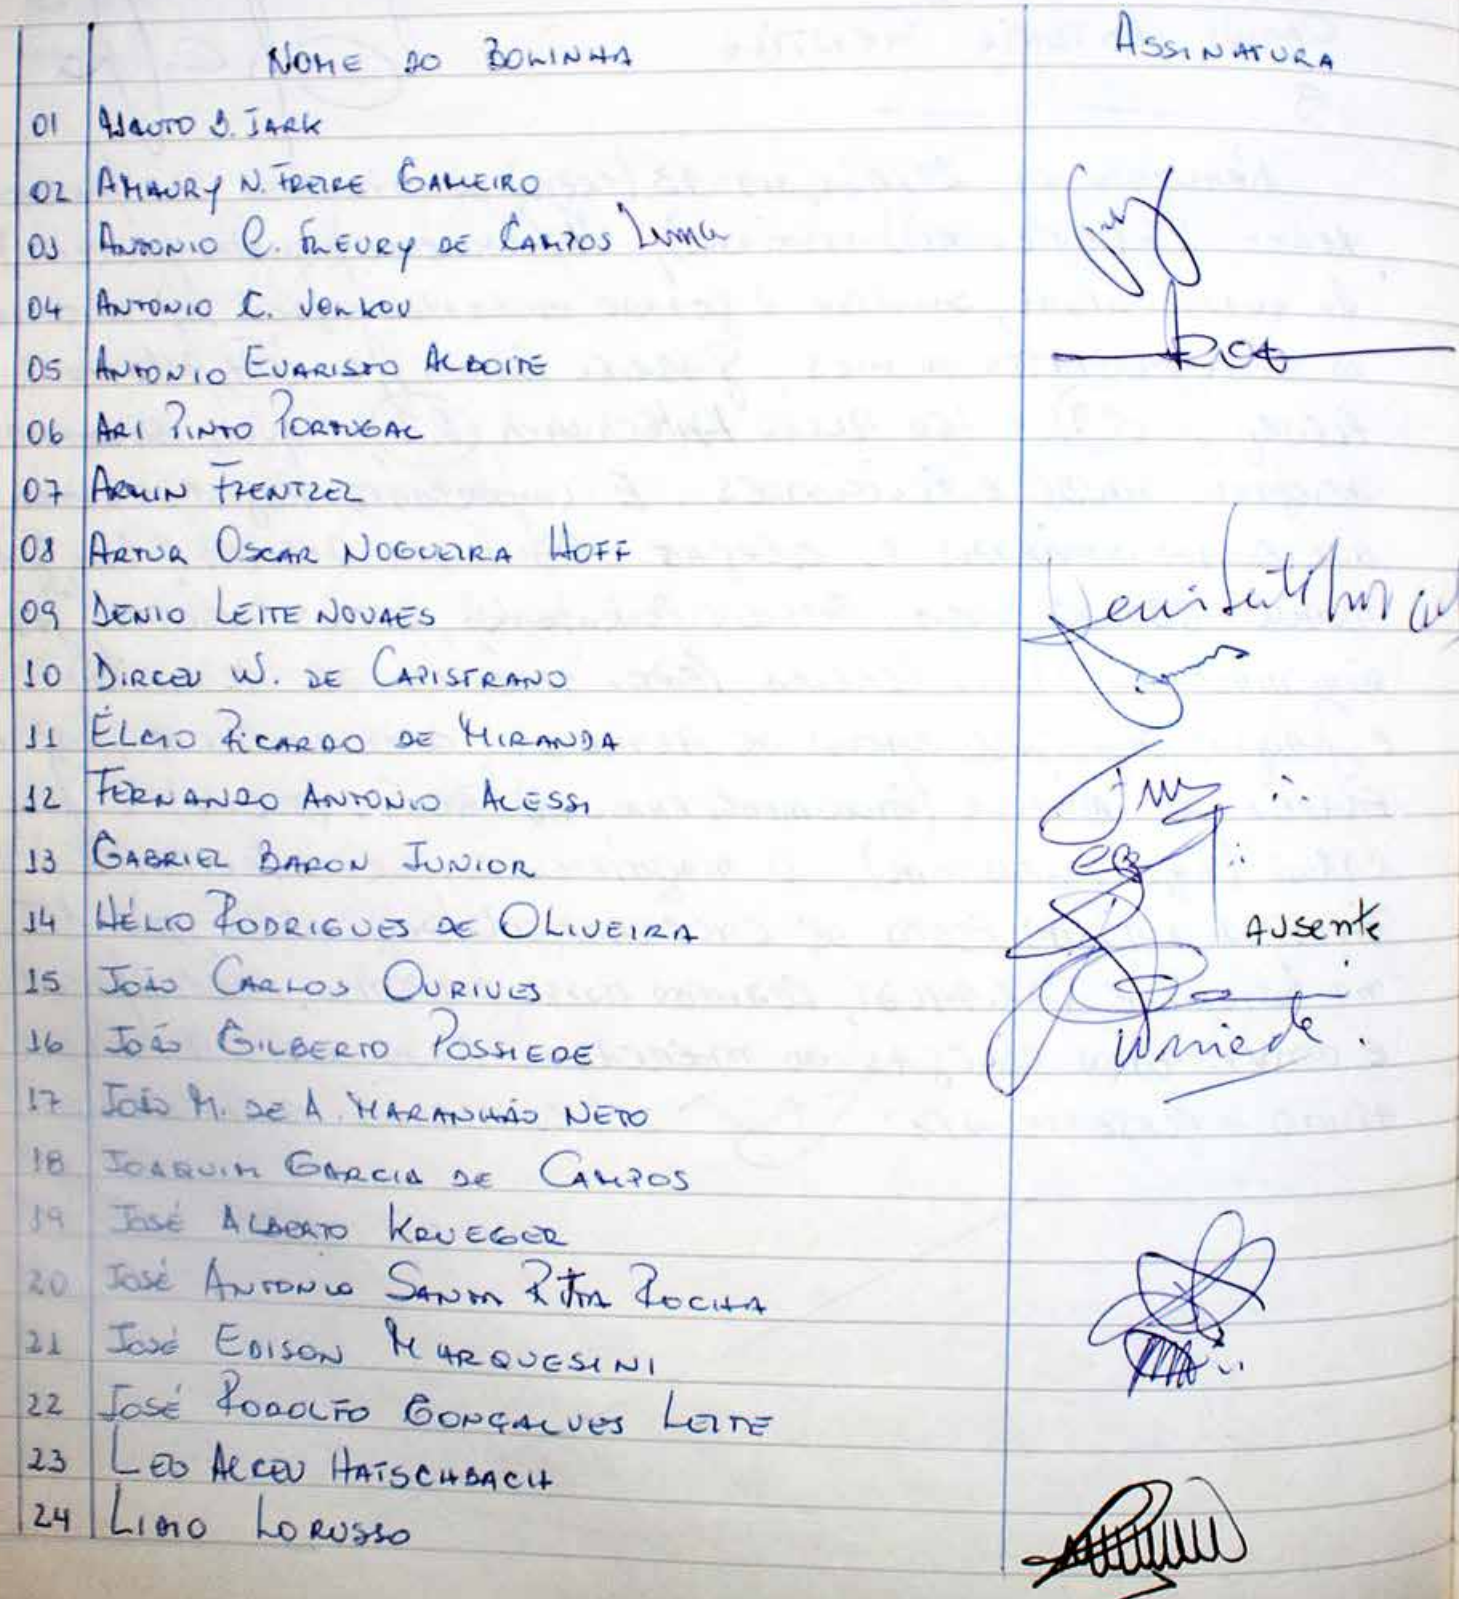 NOME DO BOLINHA ASSINATURA
01 B. JARK
02 AMAURY N. FREIRE GAMEIRO
03 ANTONIO C. FLEURY DE CAMPOS Lima
04 ANTONIO C. VOLKOV
05 ANTONIO EVARISTO ALBOITE
06 ARI PINTO PORTUGAL
07 ARMIN FRENTZEL
08 ARTUR OSCAR NOGUEIRA HOFF
09 DENIO LEITE NOVAES
10 DIRCEU W. DE CAPISTRANO
11 ÉLCIO RICARDO DE MIRANDA
12 FERNANDO ANTONIO ALESSI
13 GABRIEL BARON JUNIOR
14 HÉLIO RODRIGUES DE OLIVEIRA AUSENTE
15 JOÃO CARLOS OURIVES
16 JOÃO GILBERTO POSSIEDE
17 JOÃO M. DE A. MARANHÃO NETO
18 JOAQUIM GARCIA DE CAMPOS
19 JOSÉ ALBERTO KRUEGER
20 JOSÉ ANTONIO SANTA RITA ROCHA
21 JOSÉ EDISON MARQUESINI
22 JOSÉ RODOLFO GONÇALVES LEITE
23 LEO ALCEU HATSCHBACH
24 LORUSSO